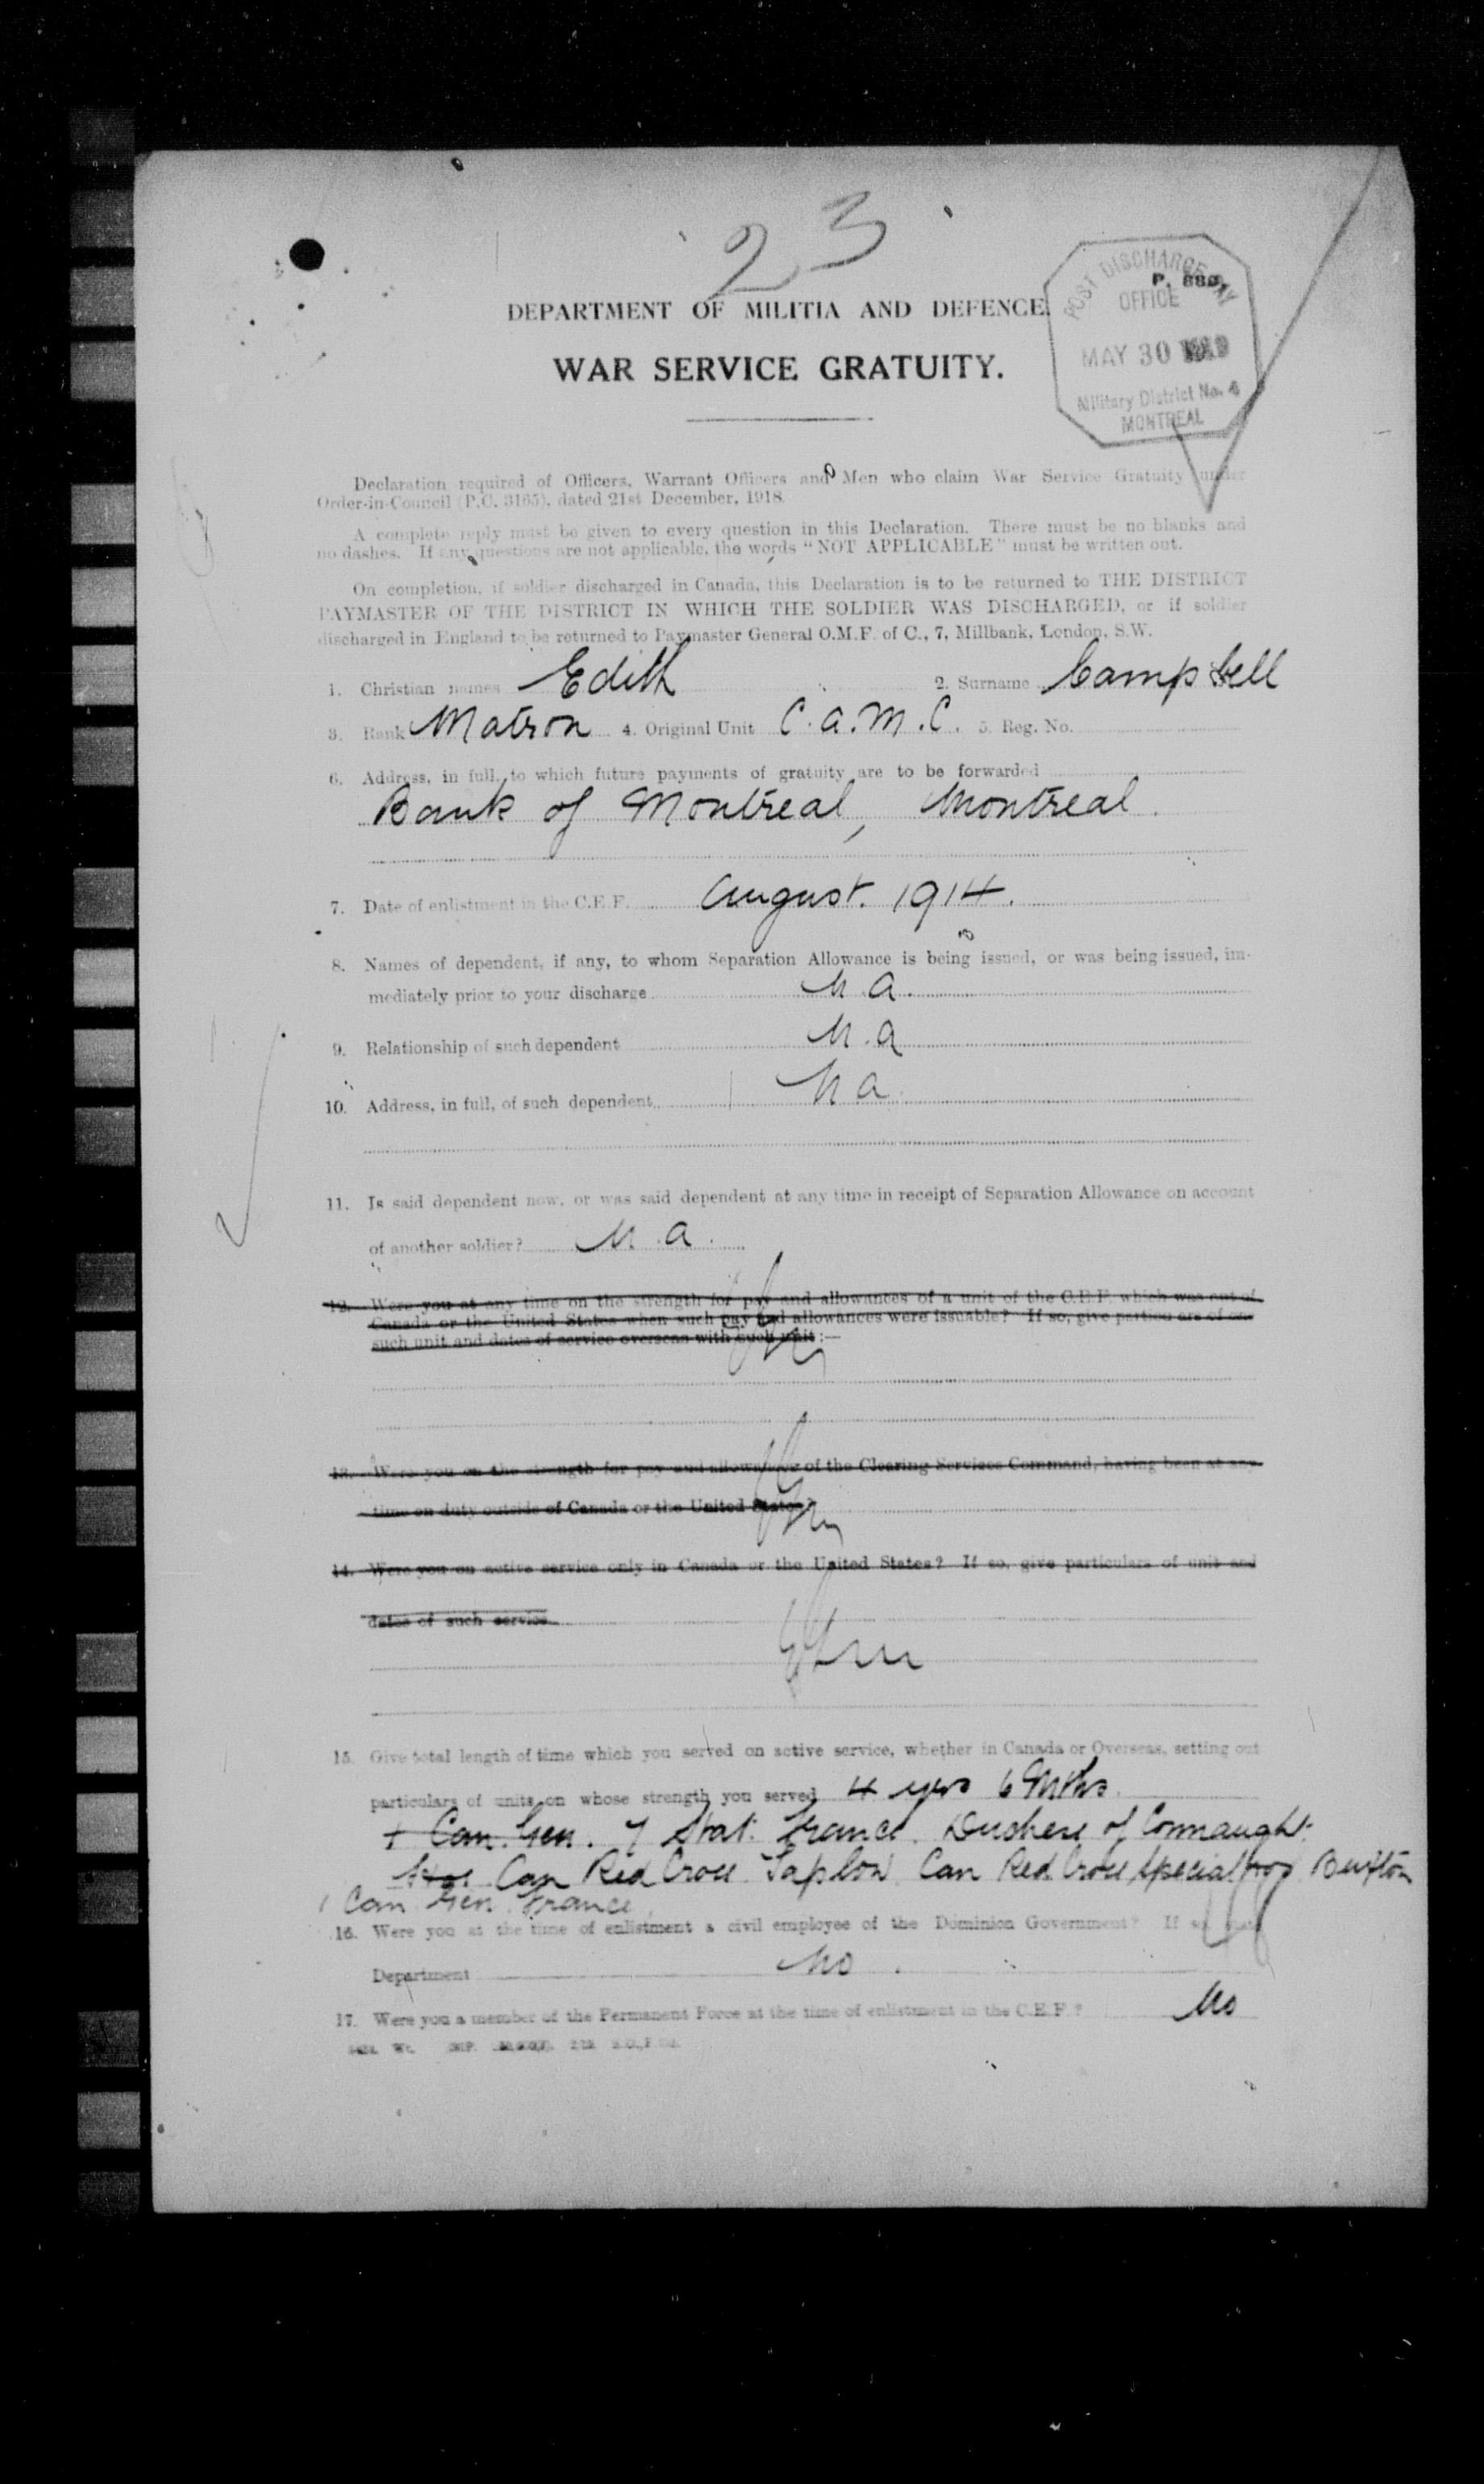 23
POST DISCHARGE PAY
P. 880.
OFFICE
MAY 30 1919
Military District No. 4
MONTREAL
DEPARTMENT OF MILITIA AND DEFENCE.
WAR SERVICE GRATUITY.
Declaration required of Officers, Warrant Officers and Men who claim War Service Gratuity under
Order-in-Council (P.C. 3165), dated 21st December, 1918.
A complete reply must be given to every question in this Declaration. There must be no blanks and
no dashes. If any questions are not applicable, the words "NOT APPLICABLE" must be written out.
On completion, if soldier discharged in Canada, this Declaration is to be returned to THE DISTRICT
PAYMASTER OF THE DISTRICT IN WHICH THE SOLDIER WAS DISCHARGED, or if soldier
discharged in England to be returned to Paymaster General O.M.F. of C., 7, Millbank, London, S.W.
1. Christian names Edith 2. Surname Campbell
3. Rank Matron 4. Original Unit C.A.M.C. 5. Reg. No.
6. Address, in full, to which future payments of gratuity are to be forwarded
Bank of Montreal, Montreal.
7. Date of enlistment in the C.E.F. August. 1914.
8. Names of dependent, if any, to whom Separation Allowance is being issued, or was being issued, im-
mediately prior to your discharge N. A.
9. Relationship of such dependent N. A
10. Address, in full, of such dependent N A.
11. Is said dependent now, or was said dependent at any time in receipt of Separation Allowance on account
of another soldier? N. A.
12. Were you at any time on the strength for pay and allowances of a unit of the C.E.F. which was out of
Canada or the United States when such pay and allowances were issuable? If so, give particulars of one
such unit and dates of service overseas with such unit :—
13. Were you on the strength for pay and allowances of the Clearing Services Command, having been at any
time on duty outside of Canada or the United States?
14. Were you on active service only in Canada or the United States? If so, give particulars of unit and
dates of such service
15. Give total length of time which you served on active service, whether in Canada or Overseas, setting out
particulars of units on whose strength you served 4 yrs 6 Mths.
1 Can. Gen. 7 Stat. France. Duchess of Connaught.
Can Red Cross Taplow. Can Red Cross Special Hos Buxton
1 Can Gen. France.
16. Were you at the time of enlistment a civil employee of the Dominion Government? If so, state
Department No.
17. Were you a member of the Permanent Force at the time of enlistment in the C.E.F.? No